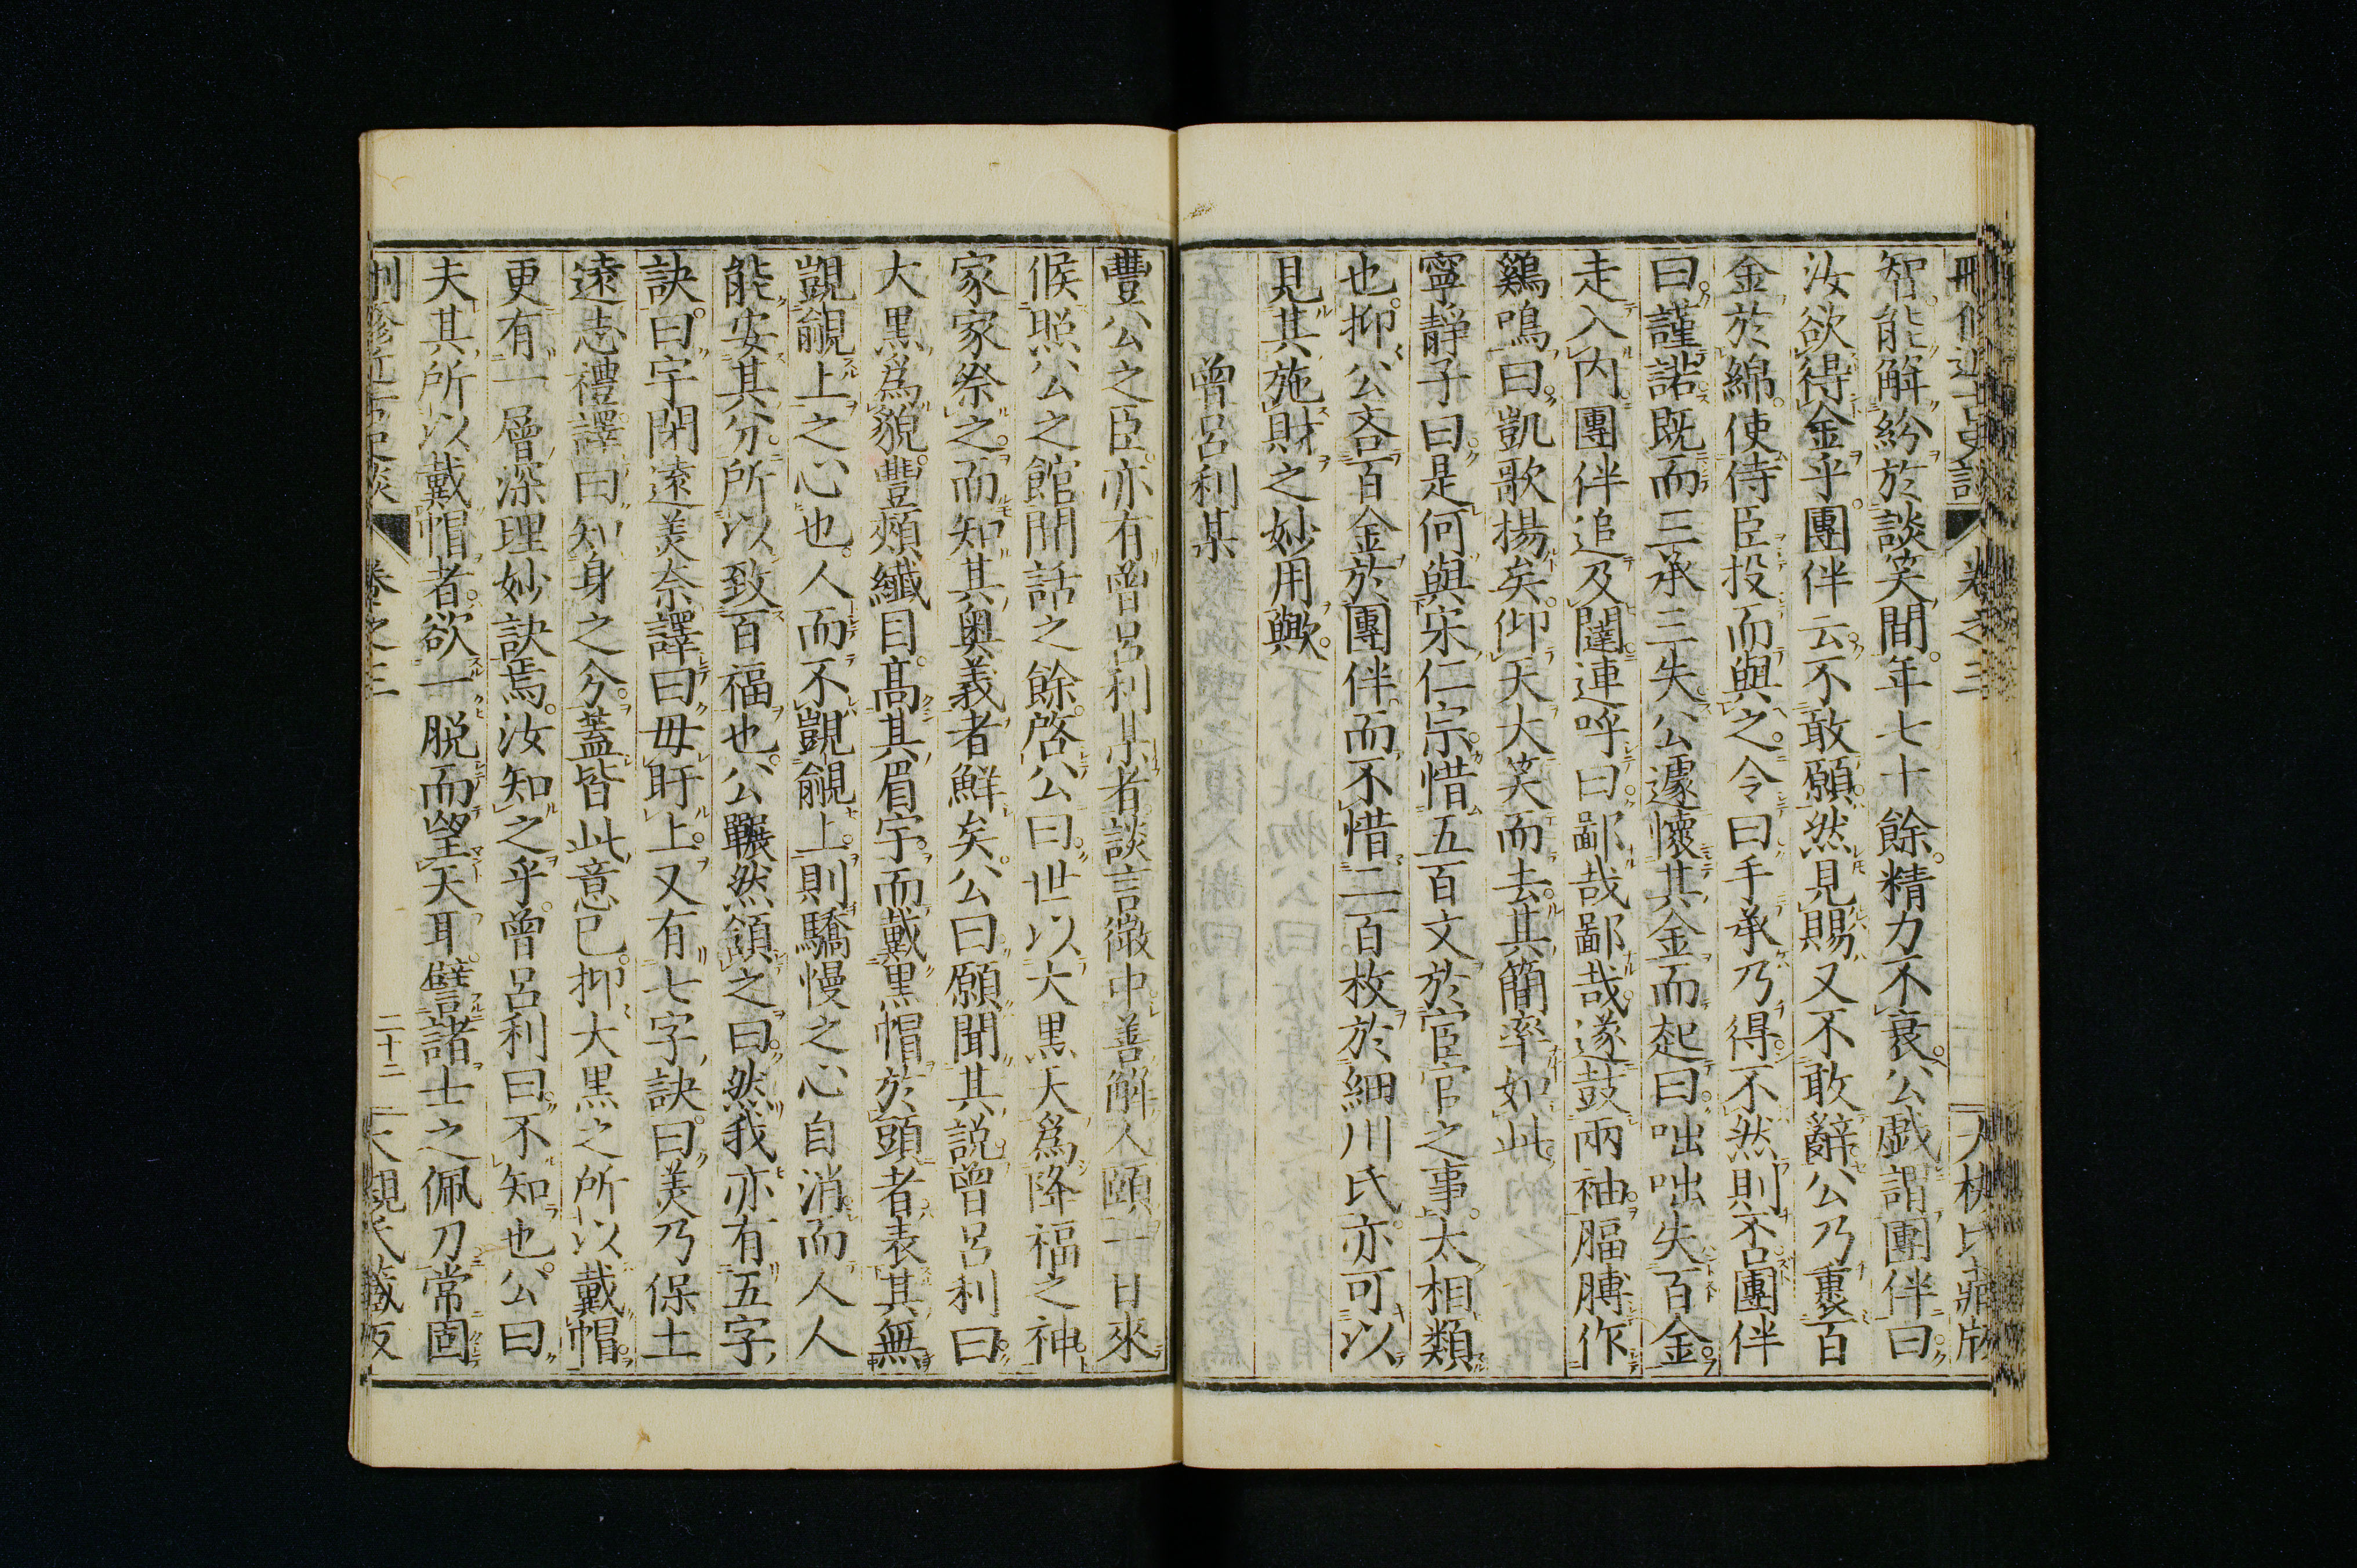 智能解紛於談笑間。年七十餘。精力不衰。公戯謂團伴曰。
汝欲得金乎。團伴云。不敢願。然見賜又不敢辭。公乃裹百
金於綿。使侍臣投而與之。令曰。手承乃得。不然則否。團伴
曰。謹諾。既而三承三失。公遽懷其金而起曰。咄咄失百金。
走入內。團伴追及闥。連呼曰。鄙哉鄙哉。遂鼓兩袖。腷膊作
鷄鳴曰。凱歌揚矣。仰天大笑而去。其簡率如此。
寧靜子曰。是何與宋仁宗惜五百文於宦官之事。太相類
也。抑公吝百金於團伴。而不惜二百枚於細川氏。亦可以
見其施財之妙用歟。
曾呂利某
豐公之臣。亦有曾呂利某者。談言微中。善解人頤。一日來
候照公之館。閒話之餘。啓公曰。世以大黒天爲降福之神。
家家祭之。而知其奧義者鮮矣。公曰。願聞其説。曾呂利曰。
大黒爲貌。豐頰纎目。高其眉宇。而戴黒帽於頭者。表其無
覬覦上之心也。人而不覬覦上。則驕慢之心自消。而人人
能安其分。所以致百福也。公囅然頷之曰。然我亦有五字
訣。曰宇閉遠美奈。譯曰毋盱上。又有七字訣。曰美乃保土
遠志禮。譯曰知身之分。蓋皆此意已。抑大黒之所以戴帽。
更有一層深理妙訣焉。汝知之乎。曾呂利曰。不知也。公曰。
夫其所以戴帽者。欲一脱而望天耳。譬諸士之佩刀。常固
卷之三 二十二